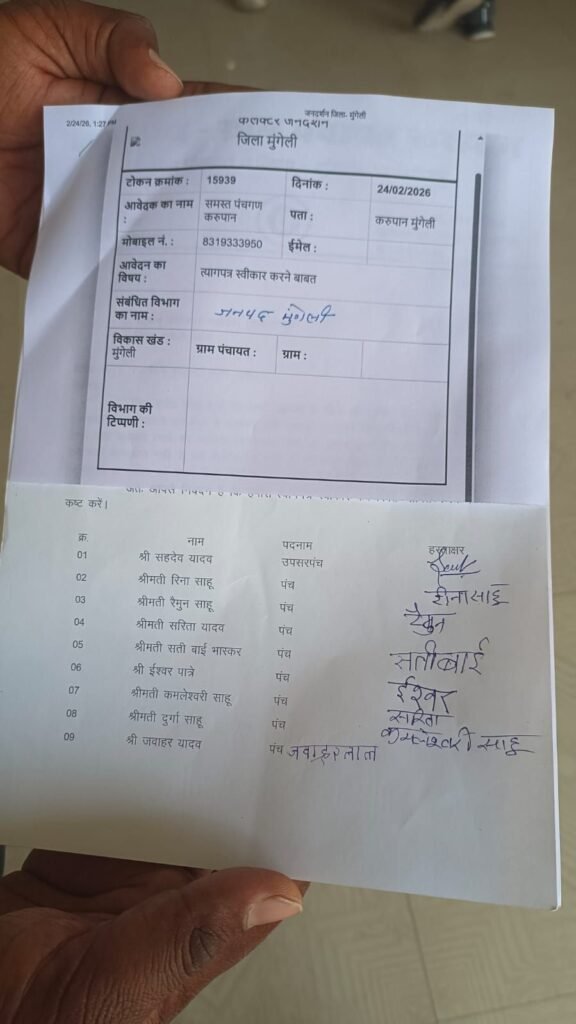 2/24/26, 1:27 PM
जनदर्शन जिला- मुंगेली
कलक्टर जनदर्शन
जिला मुंगेली
टोकन क्रमांक : 15939 दिनांक : 24/02/2026
आवेदक का नाम : समस्त पंचगण करुपान पता : करुपान मुंगेली
मोबाइल नं. : 8319333950 ईमेल :
आवेदन का विषय : त्यागपत्र स्वीकार करने बाबत
संबंधित विभाग का नाम : जनपद मुंगेली
विकास खंड : मुंगेली ग्राम पंचायत : ग्राम :
विभाग की टिप्पणी :
कष्ट करें।
क्र. नाम पदनाम हस्ताक्षर
01 श्री सहदेव यादव उपसरपंच
02 श्रीमती रिना साहू पंच रीना साहू
03 श्रीमती रैमुन साहू पंच रैमुन
04 श्रीमती सरिता यादव पंच
05 श्रीमती सती बाई भास्कर पंच सतीबाई
06 श्री ईश्वर पात्रे पंच ईश्वर
07 श्रीमती कमलेश्वरी साहू पंच सरिता
08 श्रीमती दुर्गा साहू पंच कमलेश्वरी साहू
09 श्री जवाहर यादव पंच जवाहरलाल